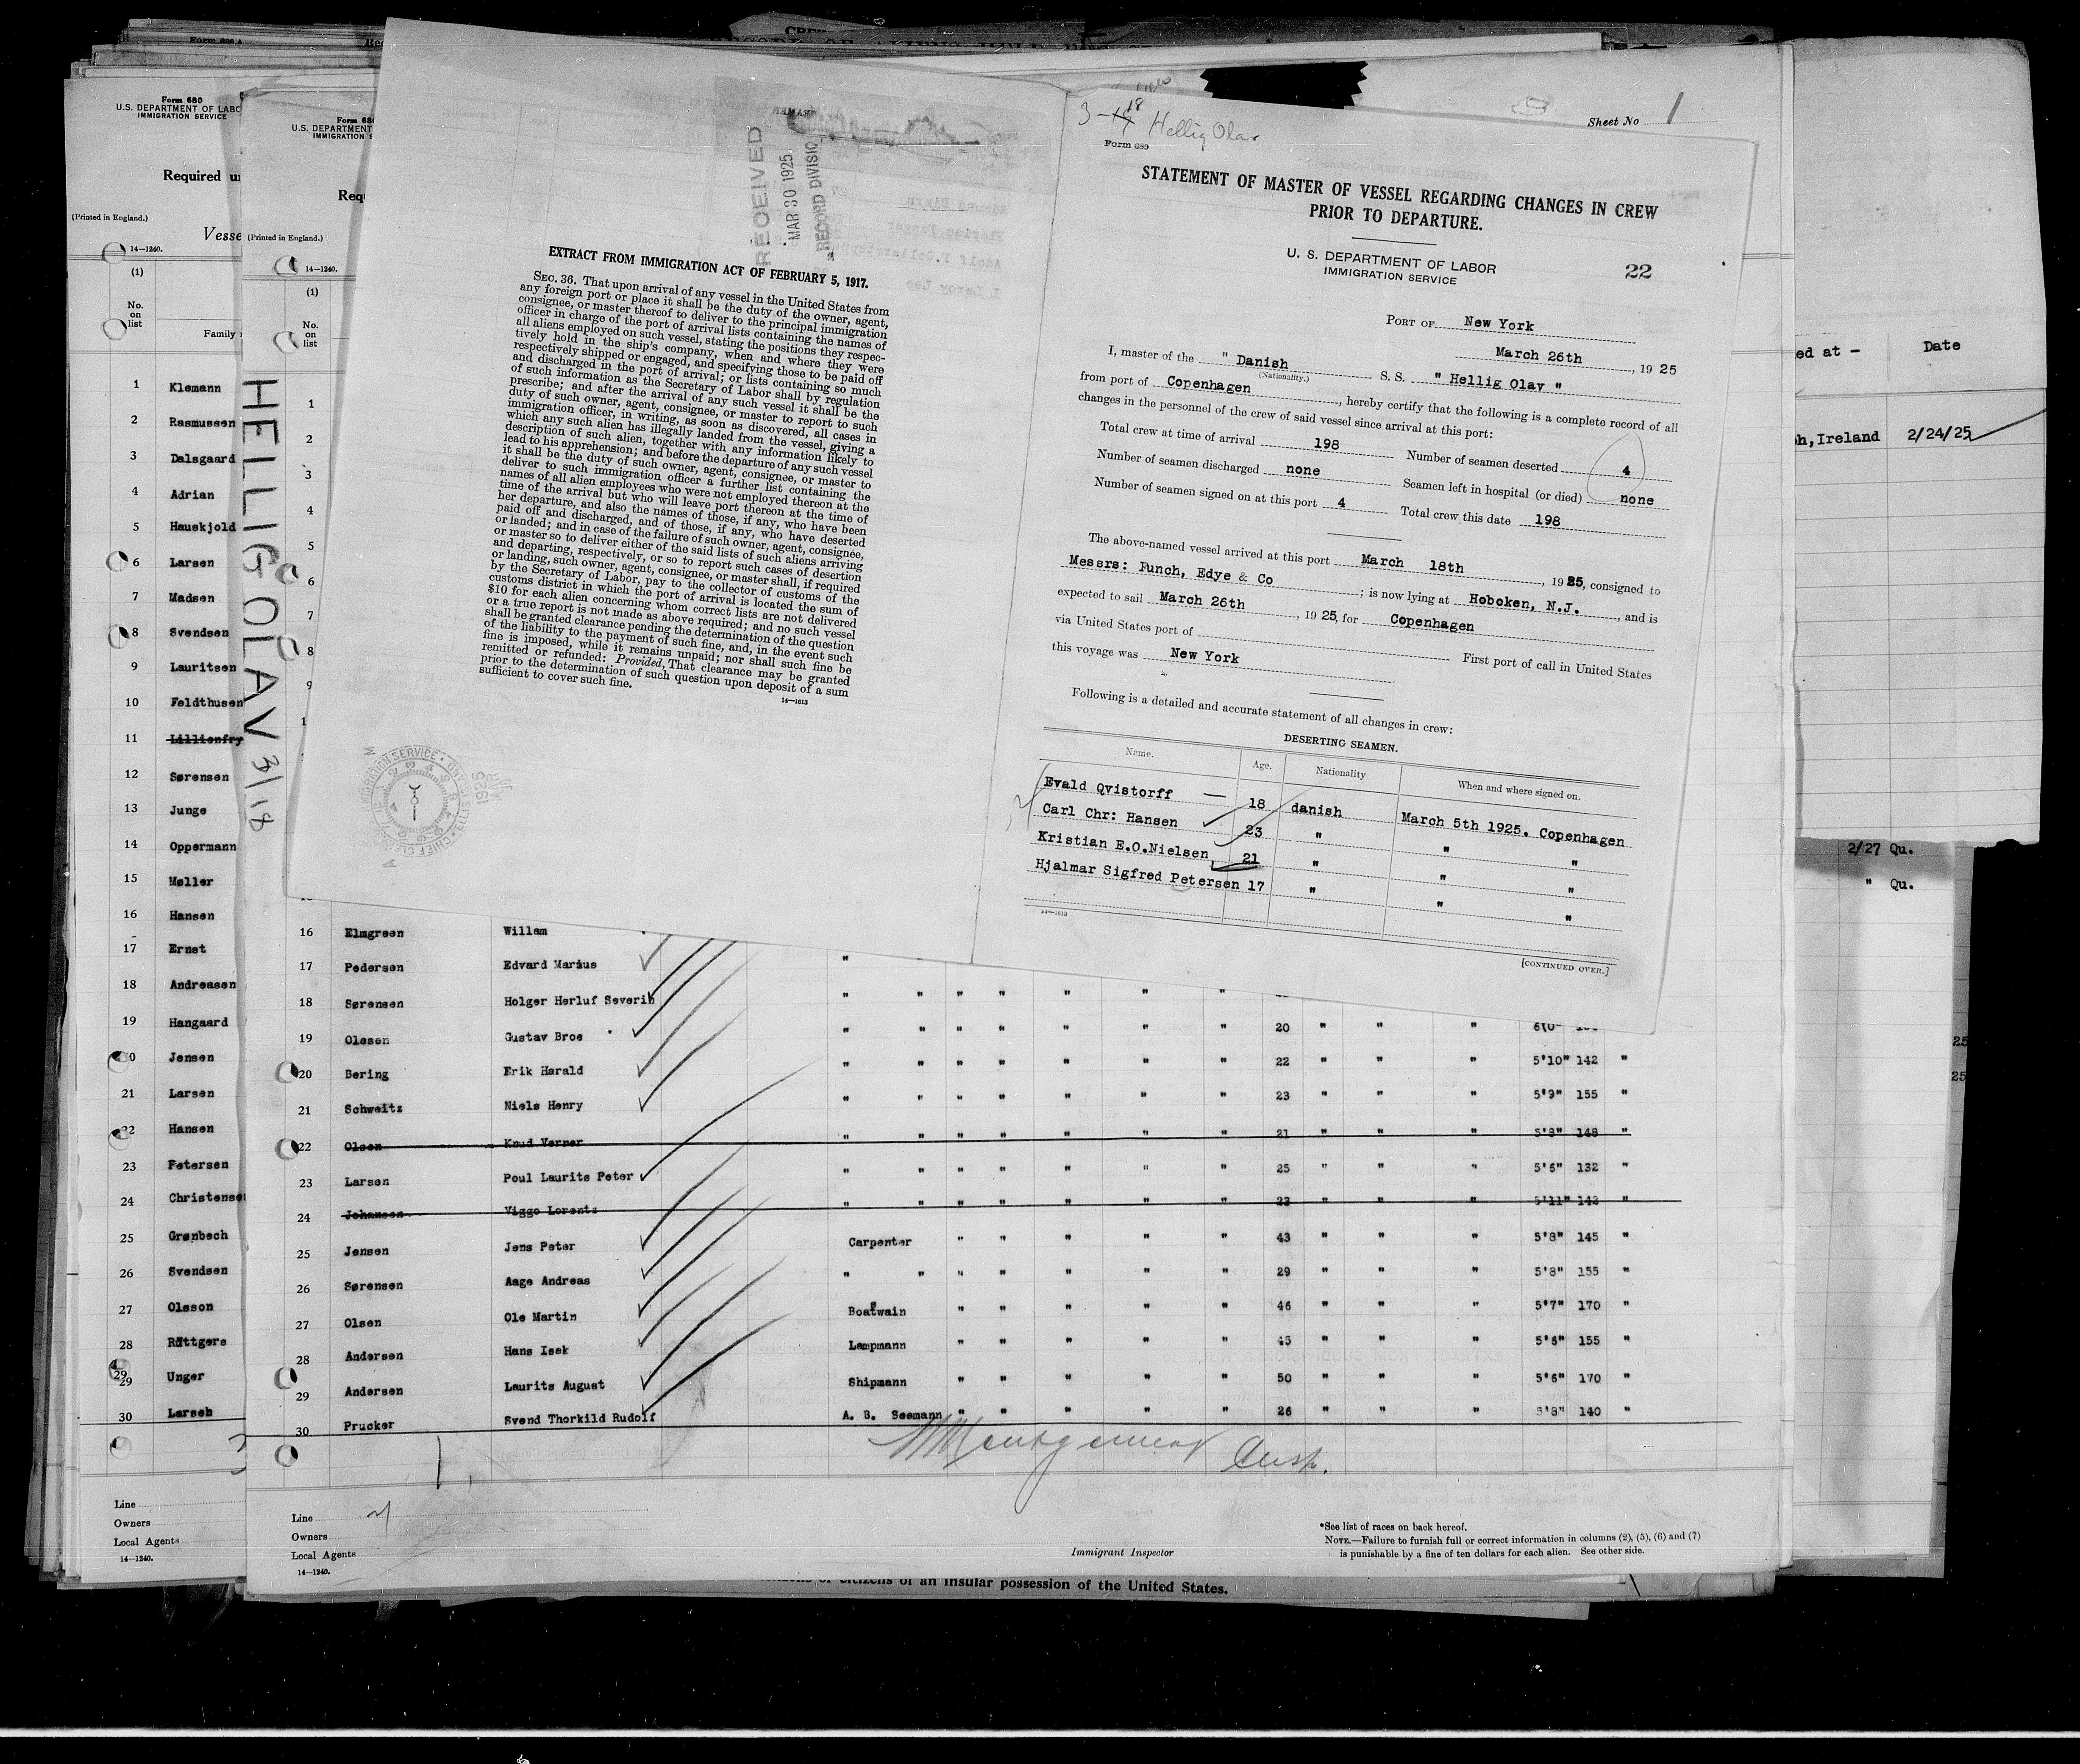 Form 680
U.S. DEPARTMENT OF LABO
IMMIGRATION SERVICE
Required u
(Printed in England.)
Vesse
14—1240.
(1)
No.
on
list
Family
1 Klemann
2 Rasmussen
3 Dalsgaard
4 Adrian
5 Hauskjold
6 Larsen
7 Madsen
8 Svendsen
9 Lauritsen
10 Feldthusen
11 Lillienfry
12 Sørensen
13 Junge
14 Oppermann
15 Møller
16 Hansen
17 Ernst
18 Andreasen
19 Hangaard
0 Jensen
21 Larsen
22 Hansen
23 Petersen
24 Christense
25 Grønbech
26 Svendsen
27 Olsson
28 Røttgers
29 Unger
30 Larseb
Line
Owners
Local Agents
14—1240.
Form 68
U.S. DEPARTMENT
IMMIGRATION S
Req
(Printed in England.)
14—1240.
(1)
No.
on
list
HELLIG OLAV 3/18
1
2
3
4
5
6
7
8
9
1
RECEIVED
MAR 30 1925
RECORD DIVISIO
EXTRACT FROM IMMIGRATION ACT OF FEBRUARY 5, 1917.
SEC. 36. That upon arrival of any vessel in the United States from
any foreign port or place it shall be the duty of the owner, agent,
consignee, or master thereof to deliver to the principal immigration
officer in charge of the port of arrival lists containing the names of
all aliens employed on such vessel, stating the positions they respec-
tively hold in the ship's company, when and where they were
respectively shipped or engaged, and specifying those to be paid off
and discharged in the port of arrival; or lists containing so much
of such information as the Secretary of Labor shall by regulation
prescribe; and after the arrival of any such vessel it shall be the
duty of such owner, agent, consignee, or master to report to such
immigration officer, in writing, as soon as discovered, all cases in
which any such alien has illegally landed from the vessel, giving a
description of such alien, together with any information likely to
lead to his apprehension; and before the departure of any such vessel
it shall be the duty of such owner, agent, consignee, or master to
deliver to such immigration officer a further list containing the
names of all alien employees who were not employed thereon at the
time of the arrival but who will leave port thereon at the time of
her departure, and also the names of those, if any, who have been
paid off and discharged, and of those, if any, who have deserted
or landed; and in case of the failure of such owner, agent, consignee,
or master so to deliver either of the said lists of such aliens arriving
and departing, respectively, or so to report such cases of desertion
or landing, such owner, agent, consignee, or master shall, if required
by the Secretary of Labor, pay to the collector of customs of the
customs district in which the port of arrival is located the sum of
$10 for each alien concerning whom correct lists are not delivered
or a true report is not made as above required; and no such vessel
shall be granted clearance pending the determination of the question
of the liability to the payment of such fine, and, in the event such
fine is imposed, while it remains unpaid; nor shall such fine be
remitted or refunded: Provided, That clearance may be granted
prior to the determination of such question upon deposit of a sum
sufficient to cover such fine.
14—1613
3-18 Hellig Olav
Form 689
Sheet No 1
STATEMENT OF MASTER OF VESSEL REGARDING CHANGES IN CREW
PRIOR TO DEPARTURE.
U. S. DEPARTMENT OF LABOR
IMMIGRATION SERVICE
22
PORT OF New York
March 26th, 1925
I, master of the " Danish S. S. " Hellig Olav "
(Nationality.)
from port of Copenhagen, hereby certify that the following is a complete record of all
changes in the personnel of the crew of said vessel since arrival at this port:
Total crew at time of arrival 198 Number of seamen deserted 4
Number of seamen discharged none Seamen left in hospital (or died) none
Number of seamen signed on at this port 4 Total crew this date 198
The above-named vessel arrived at this port March 18th, 1925, consigned to
Messrs: Funch, Edye & Co; is now lying at Hoboken, N.J., and is
expected to sail March 26th, 1925, for Copenhagen
via United States port of First port of call in United States
this voyage was New York
Following is a detailed and accurate statement of all changes in crew:
DESERTING SEAMEN.
Name. Age. Nationality When and where signed on.
Evald Qvistorff — 18 danish March 5th 1925. Copenhagen
Carl Chr: Hansen 23 " " "
Kristian E.O.Nielsen 21 " " "
Hjalmar Sigfred Petersen 17 " " "
14—1613
[CONTINUED OVER.]
ed at — Date
h,Ireland 2/24/25
2/27 Qu.
" Qu.
25
25
16 Elmgreen Willam
17 Pedersen Edvard Marius "
18 Sørensen Holger Herluf Severin " " " " " " "
19 Olesen Gustav Broe " " " " " " " 20 " " " 6'0"
20 Bering Erik Harald " " " " " " " 22 " " " 5'10" 142 "
21 Schweitz Niels Henry " " " " " " " 23 " " " 5'9" 155 "
22 Olsen Knud Verner " " " " " " " 21 " " " 5'8" 148 "
23 Larsen Poul Laurits Peter " " " " " " " 25 " " " 5'6" 132 "
24 Johansen Viggo Lorentz " " " " " " " 23 " " " 5'11" 142 "
25 Jensen Jens Peter Carpenter " " " " " 43 " " " 5'8" 145 "
26 Sørensen Aage Andreas " " " " " " " 29 " " " 5'8" 155 "
27 Olsen Ole Martin Boatwain " " " " " 46 " " " 5'7" 170 "
28 Andersen Hans Isek Lampmann " " " " " 45 " " " 5'6" 155 "
29 Andersen Laurits August Shipmann " " " " " 50 " " " 5'6" 170 "
30 Prucker Svend Thorkild Rudolf A. B. Seemann " " " " " 26 " " " 5'8" 140 "
Montgomery Insp.
Line
Owners
Local Agents
14—1240.
Immigrant Inspector
*See list of races on back hereof.
NOTE.—Failure to furnish full or correct information in columns (2), (5), (6) and (7)
is punishable by a fine of ten dollars for each alien. See other side.
citizens of an insular possession of the United States.